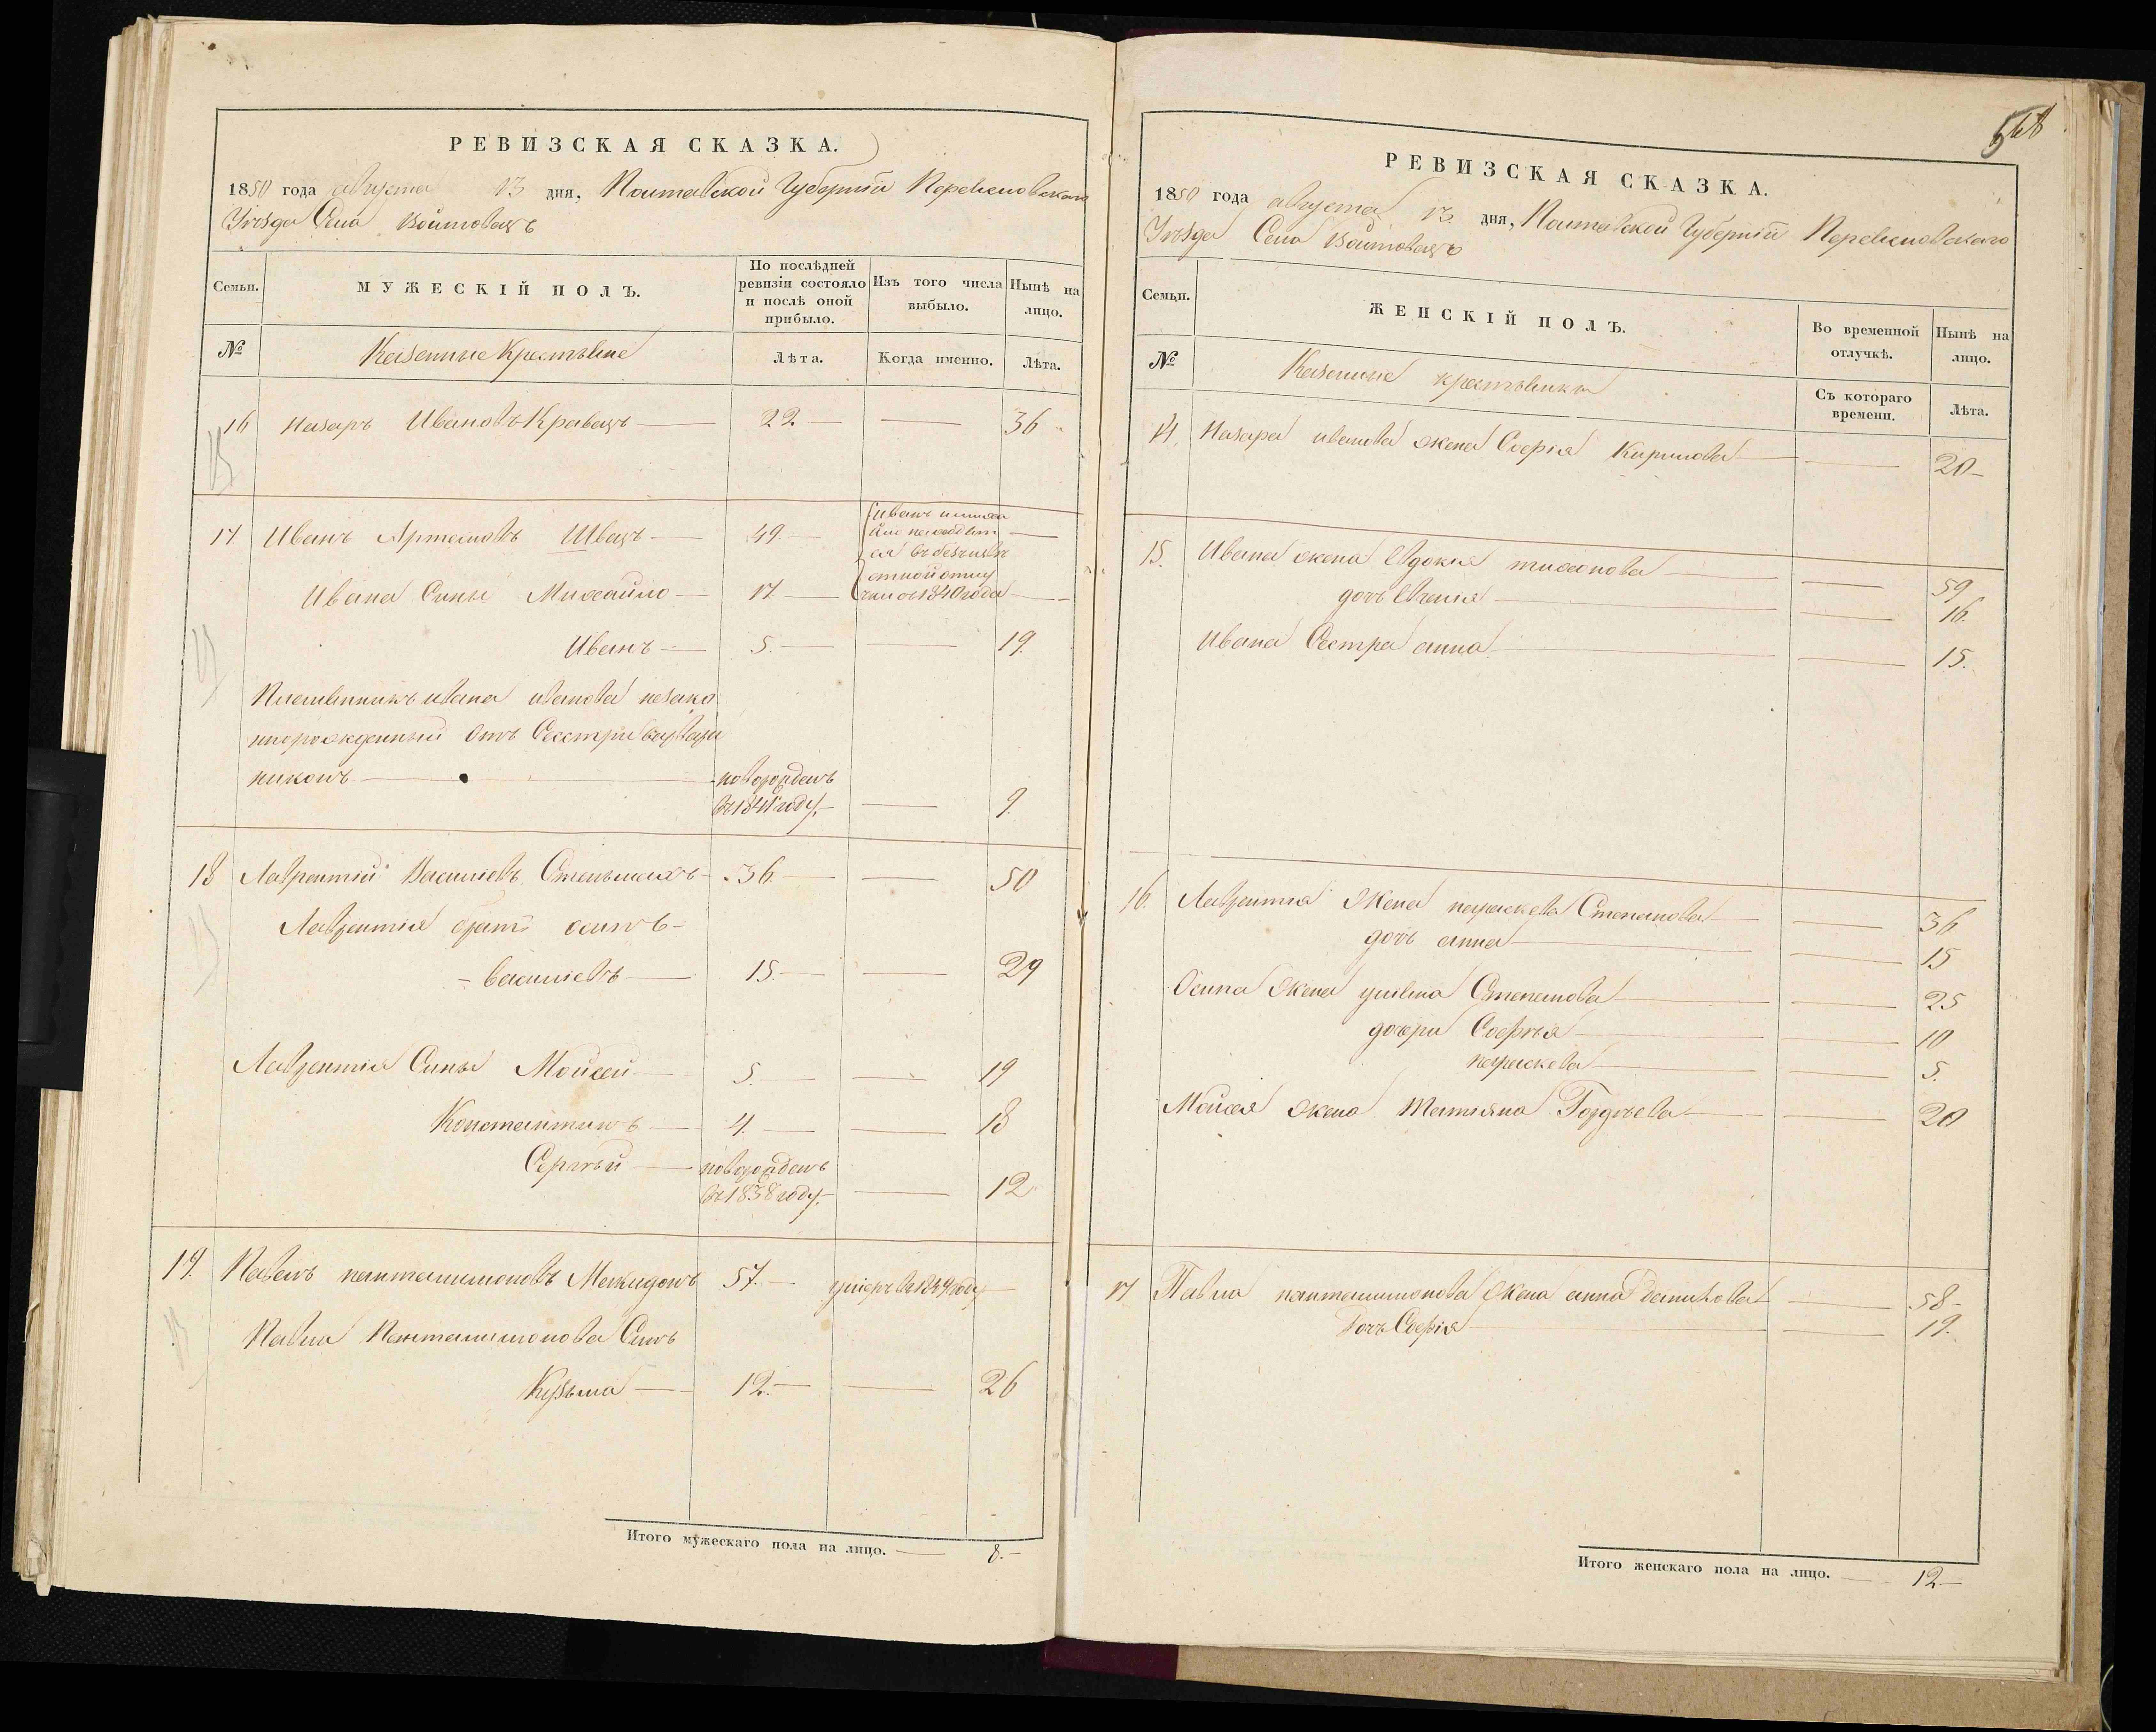 РЕВИЗСКАЯ СКАЗКА.
1850 года августа 13 дня, Полтавской Губерніи Переяславскаго
Уѣзда Села Войтовецъ
Семьи.
МУЖЕСКІЙ ПОЛЪ.
По послѣдней
ревизіи состояло
и послѣ оной
прибыло.
Изъ того числа
выбыло.
Нынѣ на
лицо.
№
Казенные Крестьяне
Лѣта.
Когда именно.
Лѣта.
16 Назаръ Ивановъ Кравецъ 22 36
17. Иванъ Артемовъ Швецъ 49
Иванъ и миха
йло находят
ся въ безъизвѣ
стной отлу
чки съ 1840 года
Ивана Сыны Михайло 17
Иванъ 5. 19.
Племянникъ ивана иванова незако
ннорожденный отъ Сестры
никонъ новорожденъ
въ 1841 году. 9.
18 Лаврентій Василіевъ 36. 50
Лаврентія братъ осипъ
василіевъ 15. 29
Лаврентія Сыны Мойсей 5. 19
Константинъ 4. 18
Сергѣй новорожденъ
въ 1838 году. 12
19. Павелъ пантелимоновъ 57. умеръ въ 1849 году
Павла Пантелимонова Сынъ
Кузьма 12. 26
Итого мужескаго пола на лицо. 8.
568
РЕВИЗСКАЯ СКАЗКА.
1850 года августа 13 дня, Полтавской Губерніи Переяславскаго
Уѣзда Села Войтовецъ
Семьи.
ЖЕНСКІЙ ПОЛЪ.
Во временной
отлучкѣ.
Нынѣ на
лицо.
№
Казенные крестьянки
Съ котораго
времени.
Лѣта.
14. Назара иванова жена Софія Кирилова 20
15. Ивана жена Евдокія 59
дочь Евгенія 16.
Ивана Сестра анна 15.
16. Лаврентія Жена параскева Степанова 36
дочь анна 15
Осипа Жена уліяна Степанова 25
дочери Софія 10
параскева 5.
Мойсея жена Татіяна Гордѣева 20
17 Павла пантелимонова Жена анна 58
Дочь Софія 19.
Итого женскаго пола на лицо. 12